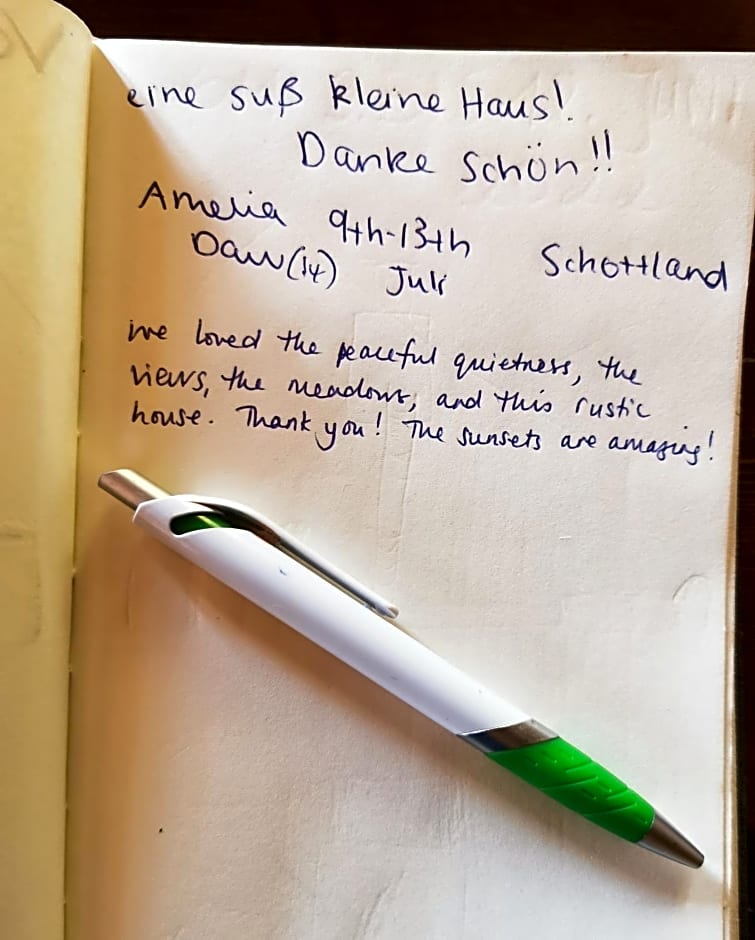 eine suß kleine Haus!
Danke Schön!!
Amelia 9th-13th Schottland
(14) Juli
we loved the peaceful quietness, the
views, the meadows, and this rustic
house. Thank you! The sunsets are amazing!